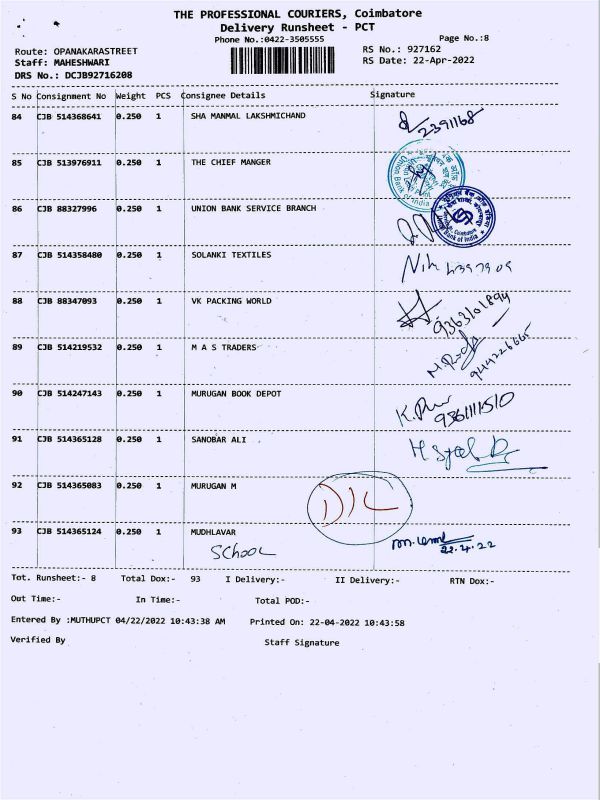 THE PROFESSIONAL COURIERS, Coimbatore
Delivery Runsheet - PCT
Phone No.:0422-3505555 Page No.:8
Route: OPANAKARASTREET RS No.: 927162
Staff: MAHESHWARI RS Date: 22-Apr-2022
DRS No.: DCJB92716208
S No Consignment No Weight PCS Consignee Details Signature
84 CJB 514368641 0.250 1 SHA MANMAL LAKSHMICHAND 2391168
85 CJB 513976911 0.250 1 THE CHIEF MANGER
Union Bank of India
86 CJB 88327996 0.250 1 UNION BANK SERVICE BRANCH
Bank of India
87 CJB 514358480 0.250 1 SOLANKI TEXTILES
88 CJB 88347093 0.250 1 VK PACKING WORLD 9363101894
89 CJB 514219532 0.250 1 M A S TRADERS 944226665
90 CJB 514247143 0.250 1 MURUGAN BOOK DEPOT 9361111510
91 CJB 514365128 0.250 1 SANOBAR ALI
92 CJB 514365083 0.250 1 MURUGAN M D/L
93 CJB 514365124 0.250 1 MUDHLAVAR
SCHOOL 22.4.22
Tot. Runsheet:- 8 Total Dox:- 93 I Delivery:- II Delivery:- RTN Dox:-
Out Time:- In Time:- Total POD:-
Entered By :MUTHUPCT 04/22/2022 10:43:38 AM Printed On: 22-04-2022 10:43:58
Verified By Staff Signature